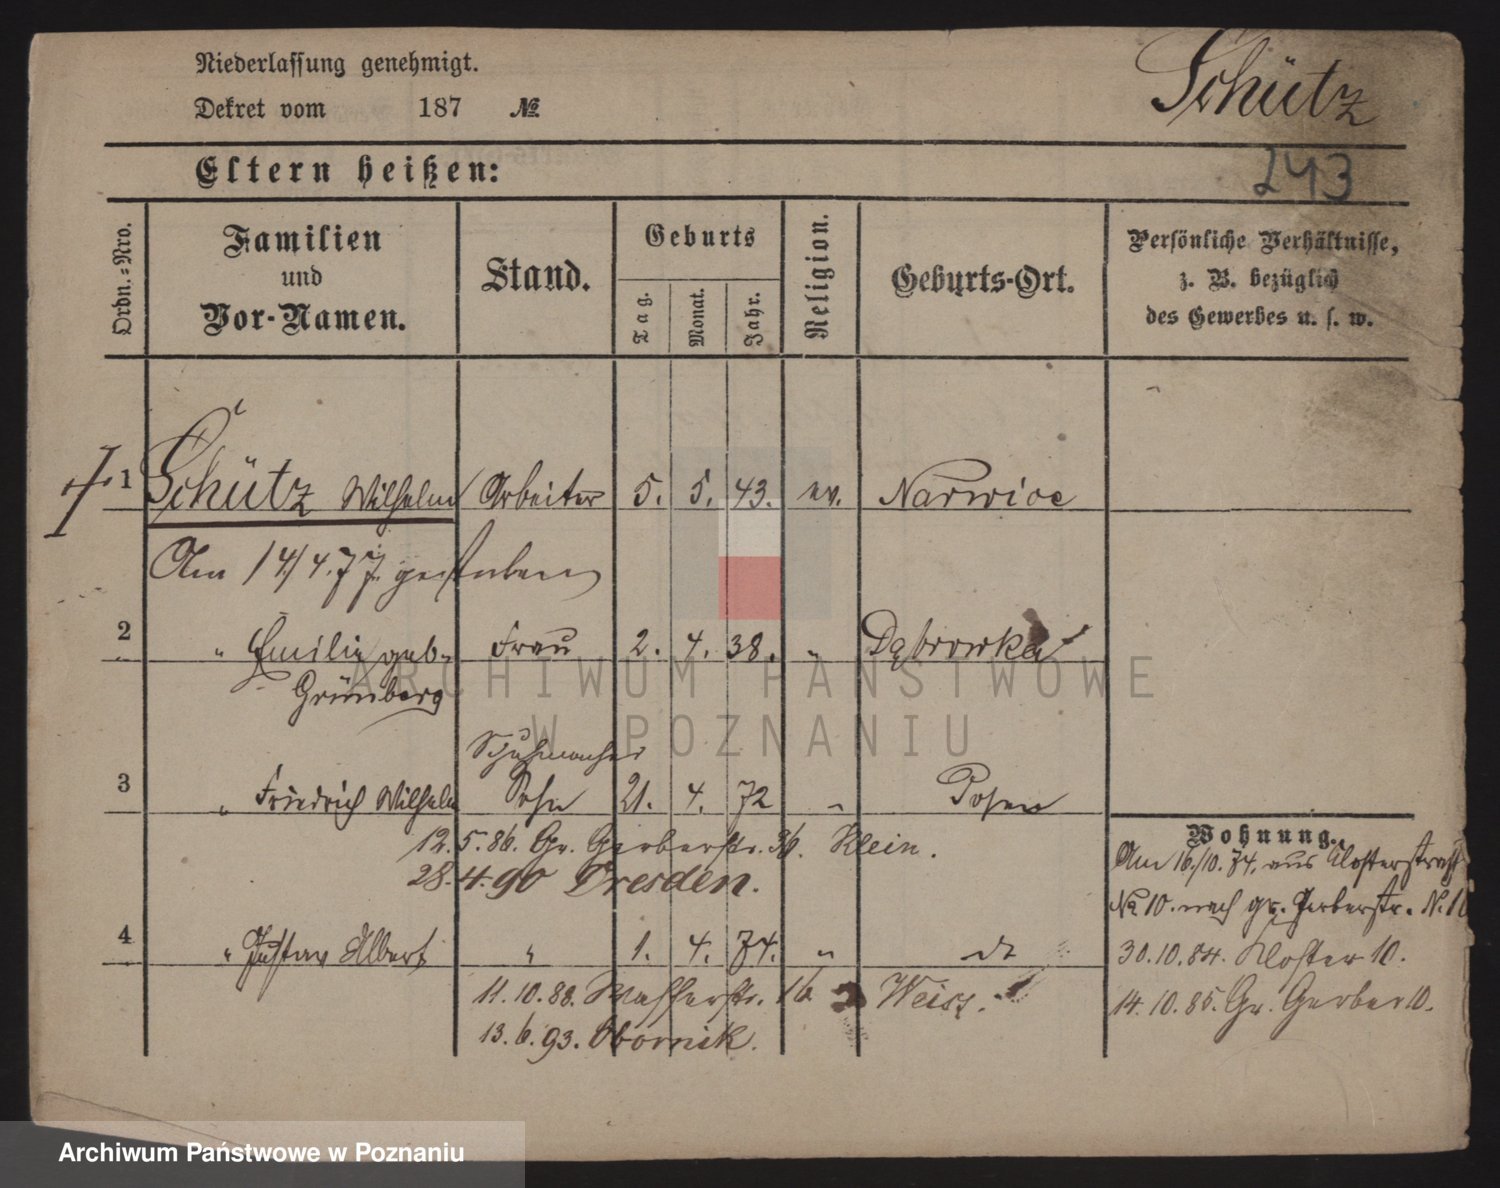 Niederlassung genehmigt.
Dekret vom 187 №
Schütz
243
Eltern heißen:
Ordn.-Nro.
Familien und Vor-Namen.
Stand.
Geburts
Tag.
Monat.
Jahr.
Religion.
Geburts-Ort.
Persönliche Verhältnisse,
z. B. bezüglich
des Gewerbes u. s. w.
1 Schütz Wilhelm Arbeiter 5. 5. 43. ev. Narwice
Am 14/4.77. gestorben
2 " Emilie geb. Frau 2. 4. 38. " Dąbrowka
Grünberg
Schuhmacher
3 " Friedrich Wilhelm Sohn 21. 4. 72 " Posen
12.5.86. Gr. Gerberstr. 36. Klein.
28.4.90 Dresden.
4 " Gustav Albert " 1. 4. 74. " dt
11.10.88. Wasserstr. 16 Weisz.
13.6.93. Obornik.
Wohnung.
Am 16./10.74. aus Klosterstraße
№ 10. nach gr. Gerberstr. N. 10
30.10.84. Kloster 10.
14.10.85. Gr. Gerber 10.
ARCHIWUM PAŃSTWOWE
W POZNANIU
Archiwum Państwowe w Poznaniu